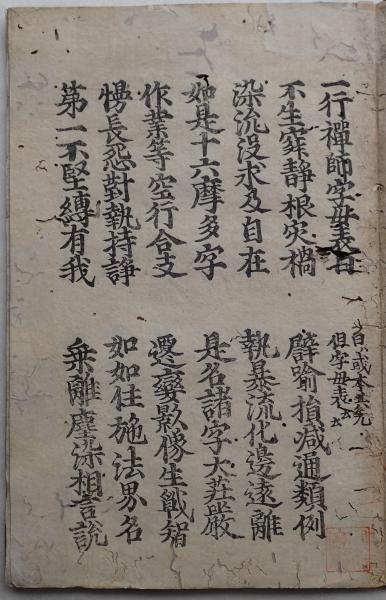 一行禪師字母表曰
或本無
但字母表云云
不生寂靜根灾禍 譬喻損減通類例
染流沒求及自在 執暴流化邊遠離
如是十六摩多字 是名諸字大莊嚴
作業等空行合支 遷變影像生戰智
慢長怨對執持諍 如如住施法界名
第一不堅縛有我 乘離塵染相言說